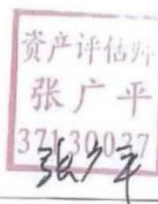 资产评估师
张广平
37130037
张广平